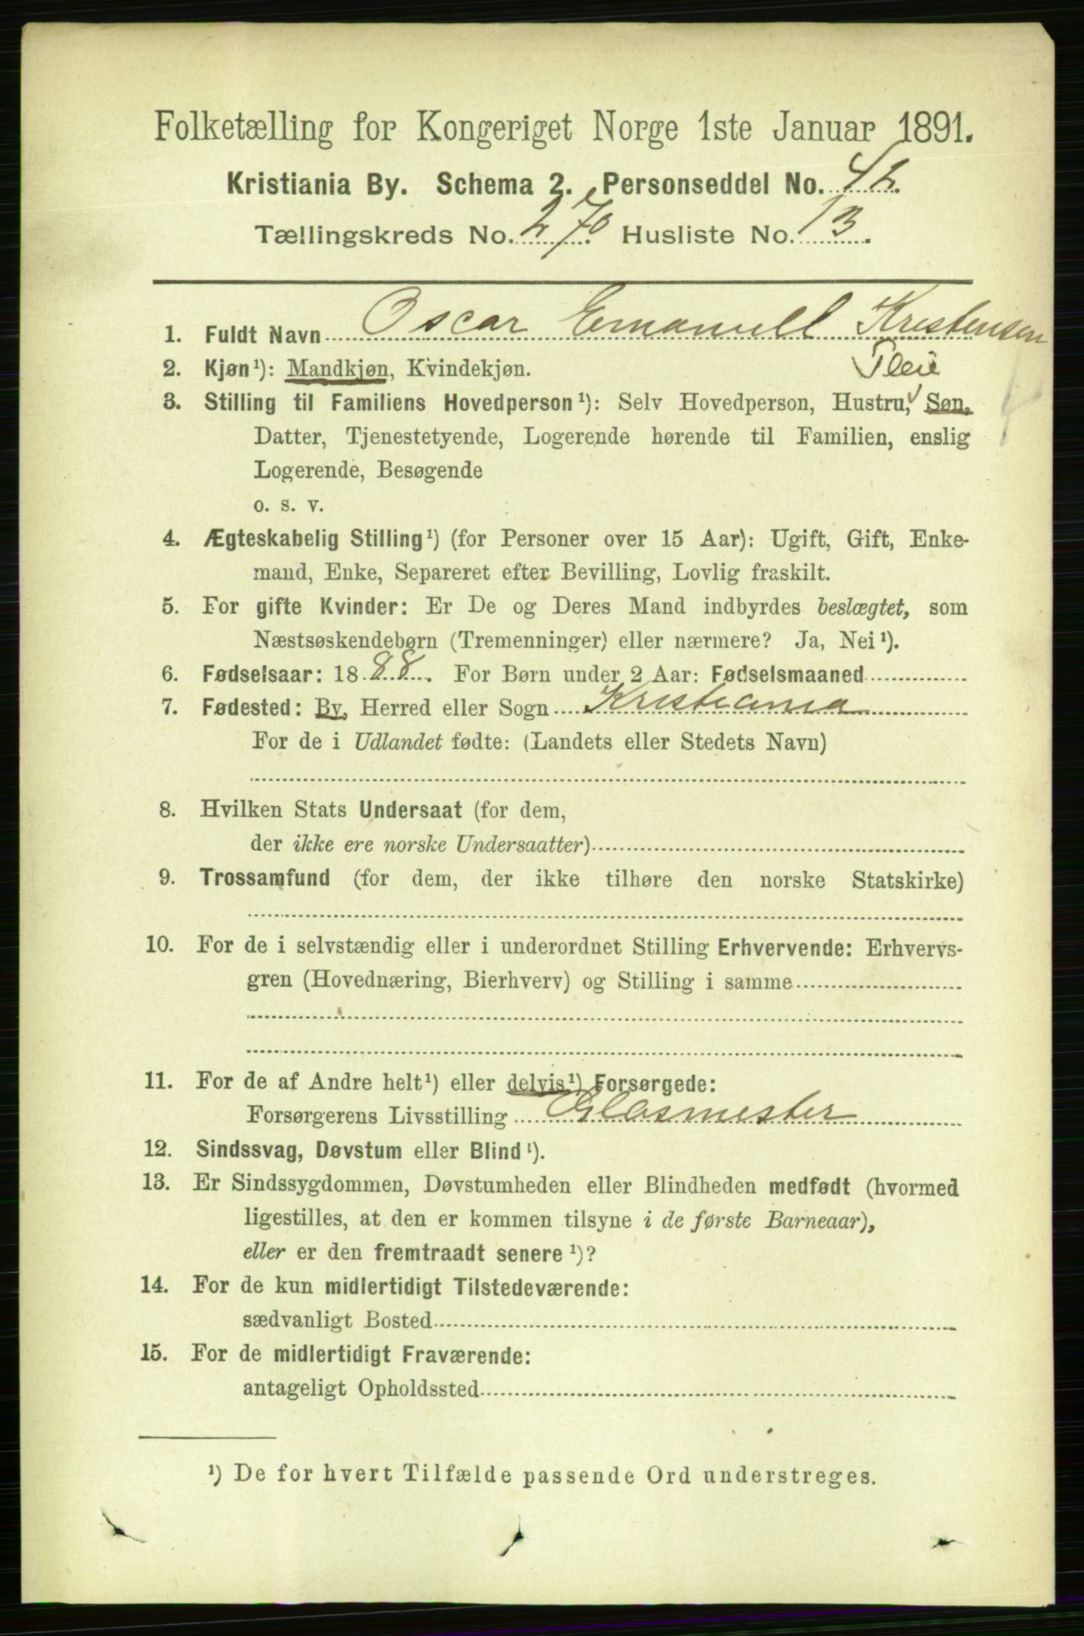 Folketælling for Kongeriget Norge 1ste Januar 1891.
Kristiania By. Schema 2. Personseddel No. 42.
Tællingskreds No. 270. Husliste No. 13.
1. Fuldt Navn Oscar Emanuell Kristensen
2. Kjøn¹): Mandkjøn, Kvindekjøn. Pleie
3. Stilling til Familiens Hovedperson¹): Selv Hovedperson, Hustru, Søn,
Datter, Tjenestetyende, Logerende hørende til Familien, enslig
Logerende, Besøgende
o. s. v.
4. Ægteskabelig Stilling¹) (for Personer over 15 Aar): Ugift, Gift, Enke-
mand, Enke, Separeret efter Bevilling, Lovlig fraskilt.
5. For gifte Kvinder: Er De og Deres Mand indbyrdes beslægtet, som
Næstsøskendebørn (Tremenninger) eller nærmere? Ja, Nei¹).
6. Fødselsaar: 1888. For Børn under 2 Aar: Fødselsmaaned
7. Fødested: By, Herred eller Sogn Kristiania
For de i Udlandet fødte: (Landets eller Stedets Navn)
8. Hvilken Stats Undersaat (for dem,
der ikke ere norske Undersaatter)
9. Trossamfund (for dem, der ikke tilhøre den norske Statskirke)
10. For de i selvstændig eller i underordnet Stilling Erhvervende: Erhvervs-
gren (Hovednæring, Bierhverv) og Stilling i samme
11. For de af Andre helt¹) eller delvis¹) Forsørgede:
Forsørgerens Livsstilling Glasmester
12. Sindssvag, Døvstum eller Blind¹).
13. Er Sindssygdommen, Døvstumheden eller Blindheden medfødt (hvormed
ligestilles, at den er kommen tilsyne i de første Barneaar),
eller er den fremtraadt senere¹)?
14. For de kun midlertidigt Tilstedeværende:
sædvanligt Bosted
15. For de midlertidigt Fraværende:
antageligt Opholdssted
¹) De for hvert Tilfælde passende Ord understreges.